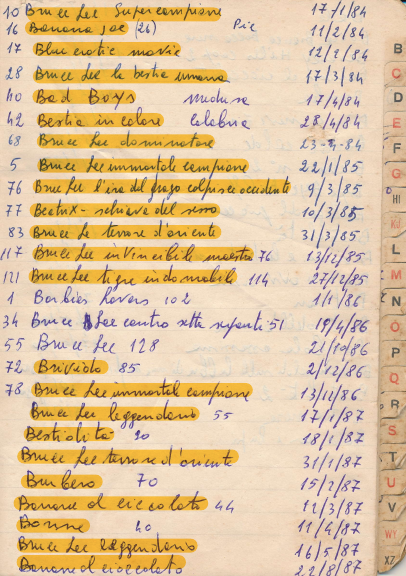 10 Bruce Lee Supercampione 17/1/84
16 Banana Joe (26) Pic 11/2/84
17 Blue erotic movie 12/2/84
28 Bruce Lee la bestia umana 17/3/84
40 Bad Boys medusa 17/4/84
42 Bestia in calore calabria 28/4/84
68 Bruce Lee dominatore 23-2-84
5 Bruce Lee immortale campione 22/1/85
76 Bruce Lee l'ira del drago colpisce occidente 9/3/85
77 Beatrix - schiava del sesso 10/3/85
83 Bruce Le terrore d'oriente 31/3/85
117 Bruce Lee invincibile maestro 76 13/12/85
121 Bruce Lee tigre indomabile 114 27/12/85
1 Barbies Lovers 102 1/1/86
34 Bruce Lee contro sette 51 19/4/86
55 Bruce Lee 128 21/10/86
72 Brivido 85 2/12/86
78 Bruce Lee immortale campione 13/12/86
Bruce Lee leggendario 55 17/1/87
Bestialità 90 18/1/87
Bruce Lee terrore d'oriente 31/1/87
Bumbero 70 15/2/87
Banane al cioccolato 44 12/3/87
Bonne 40 11/4/87
Bruce Lee leggendario 16/5/87
Banane al cioccolato 22/8/87
B
C
D
E
F
G
HI
KJ
L
M
N
O
P
Q
R
S
T
U
V
WY
XZ